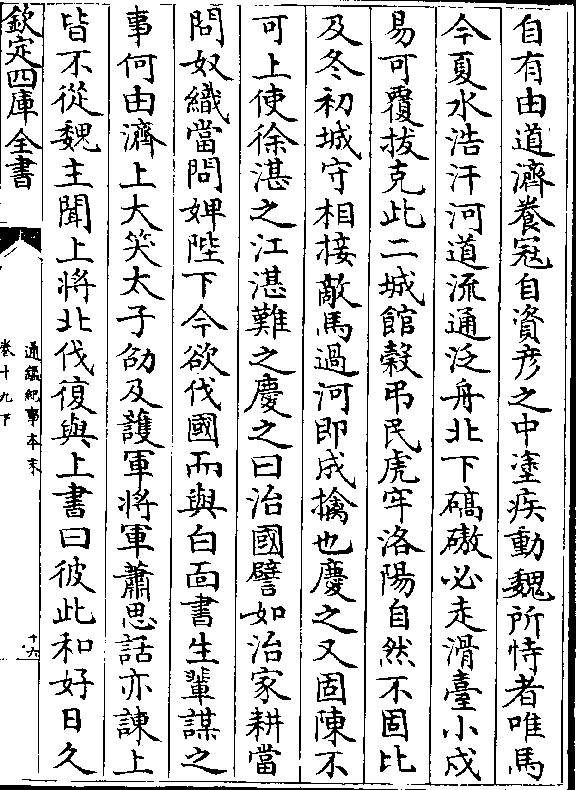 自有由道濟養寇自資彦之中塗疾動魏所恃者唯馬
今夏水浩汗河道流通泛舟北下碻磝必走滑臺小戍
易可覆拔克此二城館穀弔民虎牢洛陽自然不固比
及冬初城守相接敵馬過河即成擒也慶之又固陳不
可上使徐湛之江湛難之慶之曰治國譬如治家耕當
問奴織當問婢陛下今欲伐國而與白面書生輩謀之
事何由濟上大笑太子劭及護軍將軍蕭思話亦諫上
皆不從魏主聞上將北伐復與上書曰彼此和好日久
欽定四庫全書
通鑑紀事本末
卷十九下
十六